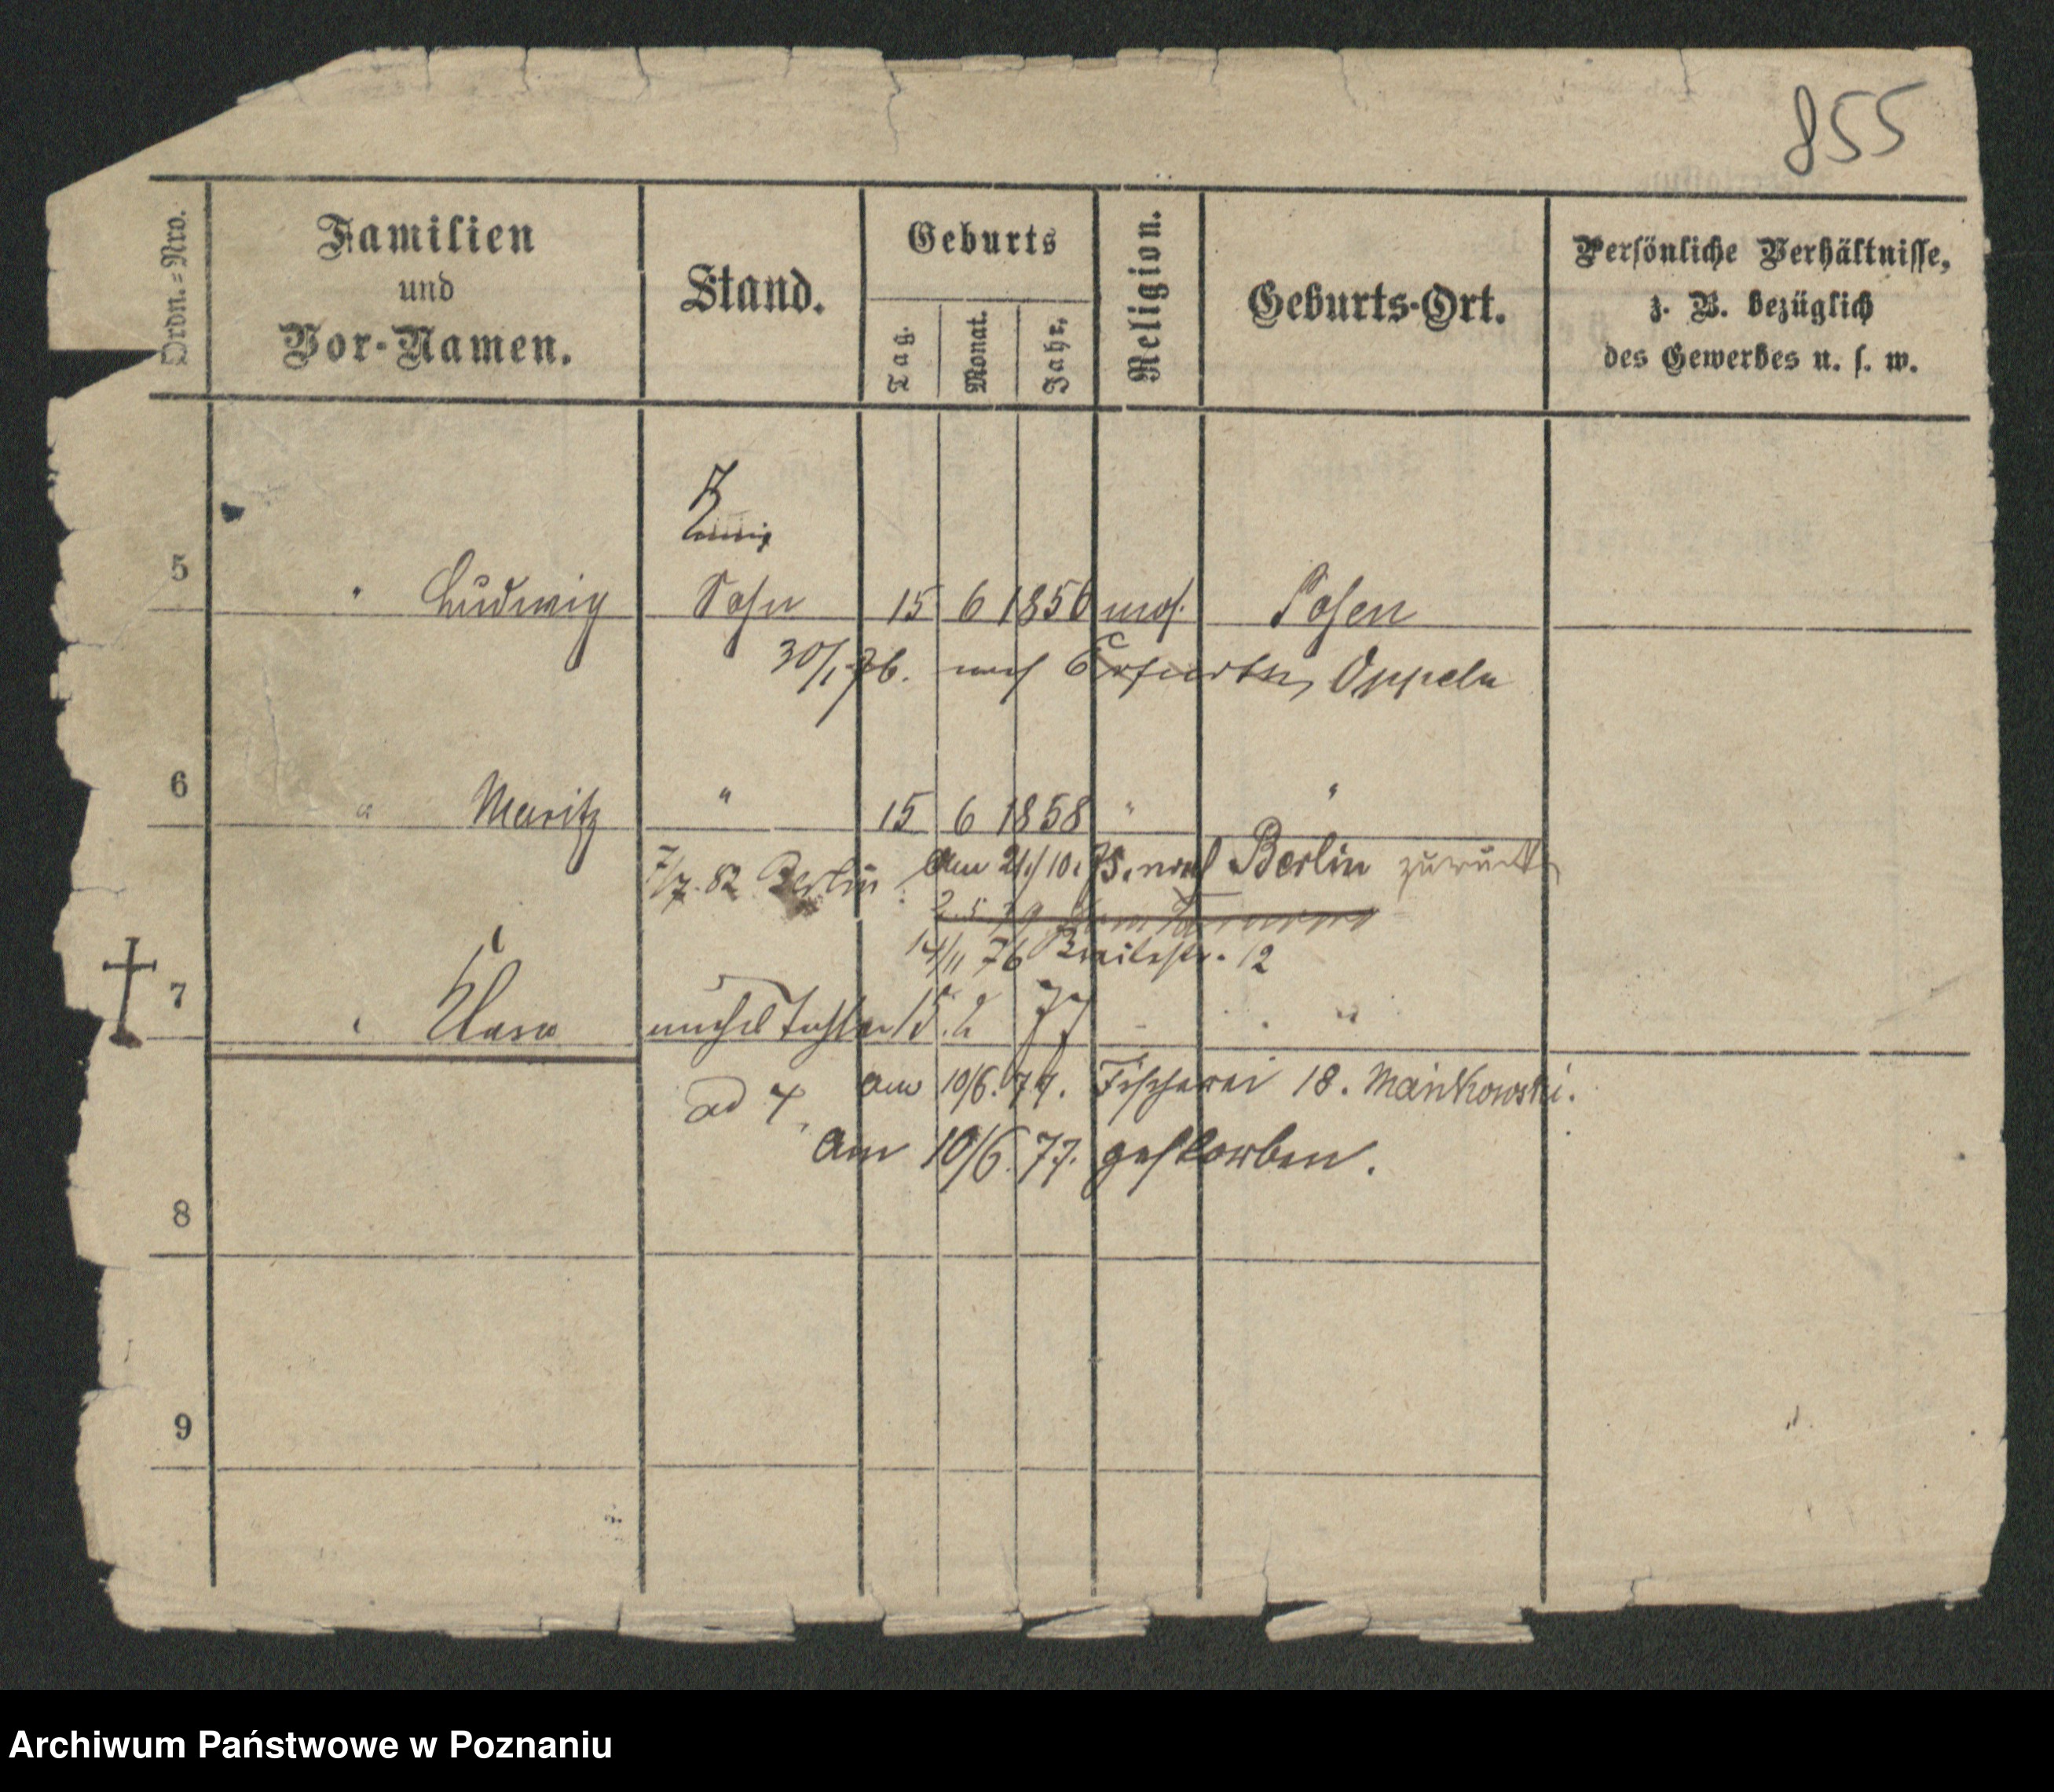 855
Ordn.=Nro.
Familien
und
Vor-Namen.
Stand.
Geburts
Tag.
Monat.
Jahr.
Religion.
Geburts-Ort.
Persönliche Verhältnisse,
z. B. bezüglich
des Gewerbes u. s. w.
5 " Ludwig Sohn 15 6 1856 mos. Posen
30/1 76. nach Erfurth, Oppeln
6 " Moritz " 15 6 1858 " "
7/7. 82 Berlin. Am 21/10. 78. nach Berlin zurück
14/11 76 Breitestr. 12
7 " Clara unehel Tochter 15. 2 77 - " "
ad 7, am 10/6. 77. Fischerei 18. Mankowski.
Am 10/6. 77. gestorben.
8
9
Archiwum Państwowe w Poznaniu